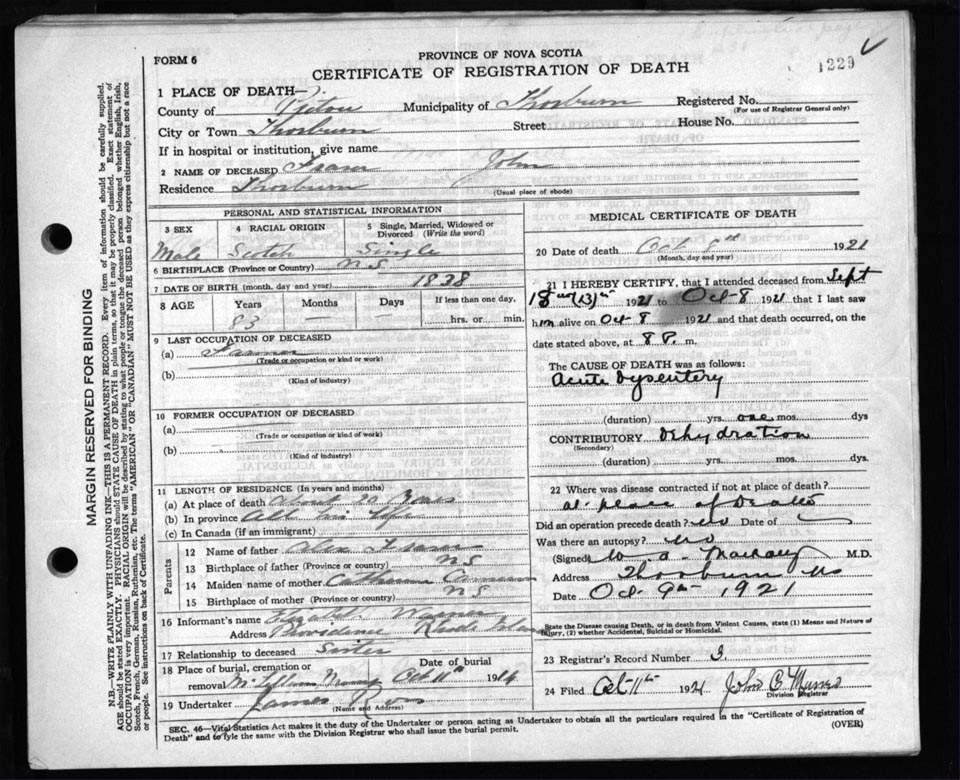 1229
FORM 6
PROVINCE OF NOVA SCOTIA
CERTIFICATE OF REGISTRATION OF DEATH
1 PLACE OF DEATH—
County of Pictou Municipality of Thorburn Registered No.
(For use of Registrar General only)
City or Town Thorburn Street House No.
If in hospital or institution, give name
2 NAME OF DECEASED Fraser John
Residence Thorburn
(Usual place of abode)
PERSONAL AND STATISTICAL INFORMATION
3 SEX 4 RACIAL ORIGIN 5 Single, Married, Widowed or Divorced (Write the word)
Male Scotch Single
6 BIRTHPLACE (Province or Country) N.S.
7 DATE OF BIRTH (month, day and year) 1838
8 AGE Years Months Days If less than one day,
83 — — hrs. or min.
9 LAST OCCUPATION OF DECEASED
(a) Farmer
(Trade or occupation or kind or work)
(b)
(Kind of industry)
10 FORMER OCCUPATION OF DECEASED
(a)
(Trade or occupation or kind of work)
(b)
(Kind of industry)
11 LENGTH OF RESIDENCE (In years and months)
(a) At place of death About 20 Years
(b) In province All his life
(c) In Canada (if an immigrant)
Parents
12 Name of father Alex Fraser
13 Birthplace of father (Province or country) N S
14 Maiden name of mother Catherine Cameron
15 Birthplace of mother (Province or country) N S
16 Informant's name Warner
Address Providence Rhode Island
17 Relationship to deceased Sister
18 Place of burial, cremation or removal Date of burial
Oct 11th 19
19 Undertaker James
(Name and Address)
MEDICAL CERTIFICATE OF DEATH
20 Date of death Oct 8th 1921
(Month, day and year)
21 I HEREBY CERTIFY, that I attended deceased from Sept
1921 to Oct-8 1921 that I last saw
him alive on Oct-8 1921 and that death occurred, on the
date stated above, at 8 P. m.
The CAUSE OF DEATH was as follows:
Acute Dysentery
(duration) yrs. one mos. dys
CONTRIBUTORY Dehydration
(Secondary)
(duration) yrs. mos. dys.
22 Where was disease contracted if not at place of death?
at place of Death
Did an operation precede death? no Date of
Was there an autopsy? no
(Signed) M.D.
Address Thorburn NS
Date Oct. 9th 1921
State the Disease causing Death, or in death from Violent Causes, state (1) Means and Nature of Injury, (2) whether Accidental, Suicidal or Homicidal.
23 Registrar's Record Number 3.
24 Filed Oct 11th 1921 John B Munro
Division Registrar
SEC. 46—Vital Statistics Act makes it the duty of the Undertaker or person acting as Undertaker to obtain all the particulars required in the "Certificate of Registration of
Death" and to fyle the same with the Division Registrar who shall issue the burial permit.
(OVER)
MARGIN RESERVED FOR BINDING
N.B.—WRITE PLAINLY WITH UNFADING INK—THIS IS A PERMANENT RECORD. Every item of information should be carefully supplied.
AGE should be stated EXACTLY. PHYSICIANS should STATE CAUSE OF DEATH in plain terms, so that it may be properly classified. Exact statement of
OCCUPATION is very important. RACIAL ORIGIN will be described by stating to what people or tongue the deceased person belonged whether English, Irish,
Scotch, French, German, Russian, Ruthenian, etc. The terms "AMERICAN" OR "CANADIAN" MUST NOT BE USED as they express citizenship but not a race
or people. See instructions on back of Certificate.